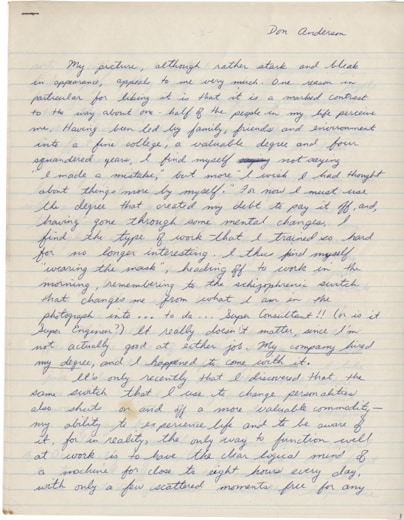 Don Anderson
My picture, although rather stark and bleak
in appearance, appeal to me very much. One reason in
particular for liking it is that it is a marked contrast
to the way about one-half of the people in my life perceive
me. Having been led by family, friends and environment
into a fine college, a valuable degree and four
squandered years, I find myself not saying
"I made a mistake," but more "I wish I had thought
about things more by myself." For now I must use
the degree that created my debt to pay it off, and,
having gone through some mental changes, I
find the type of work that I trained so hard
for no longer interesting. I thus find myself
"wearing the mask", heading off to work in the
morning, remembering to the schizophrenic switch
that changes me from what I am in the
photograph into... to da... Super Consultant!! (or is it
Super Engineer?) It really doesn't matter, since I'm
not actually good at either job. My company hired
my degree, and I happened to come with it.
It's only recently that I discovered that the
same switch that I use to change personalities
also shuts on and off a more valuable commodity—
my ability to experience life and to be aware of
it, for in reality, the only way to function well
at work is to have the clear logical mind of
a machine for close to eight hours every day,
with only a few scattered moments free for any